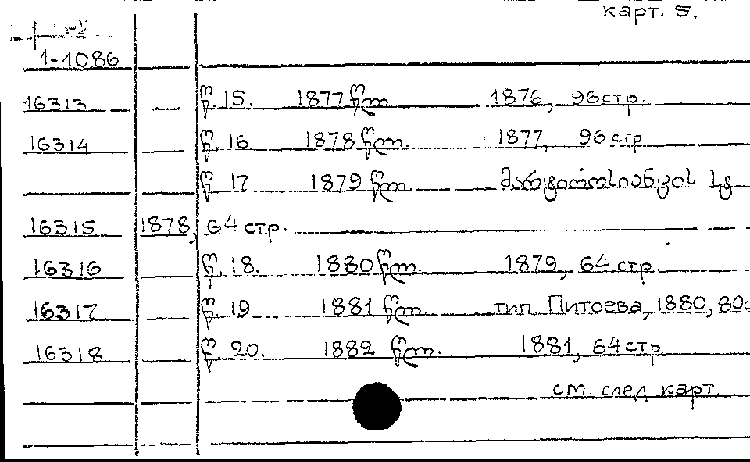 карт. 5.
1-1086
16313 წ. 15. 1877 წლ. 1876, 96 стр.
16314 წ. 16 1878 წლ. 1877, 96 стр
წ. 17 1879 წლ. მარტიროსიანცის სტ
16315 1878, 64 стр.
16316 წ. 18. 1880 წლ. 1879, 64 стр
16317 წ. 19 1881 წლ. тип. Питоева, 1880, 80с
16318 წ. 20. 1882 წლ. 1881, 64 стр
см. след карт.